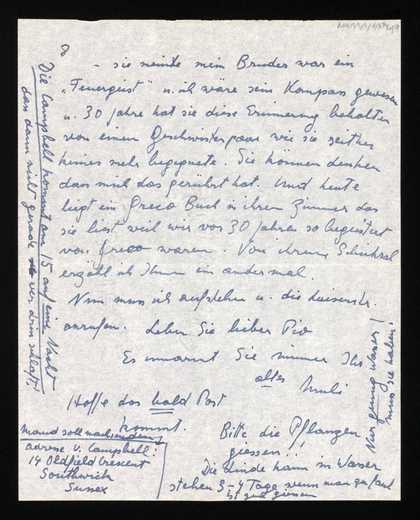 8
- sie meinte mein Bruder war ein
„Feuergeist" u. ich wäre sein Kompass gewesen
u. 30 Jahre hat sie diese Erinnerung behalten
von einem Geschwisterpaar wie sie seither
keines mehr begegnete. Sie können denken
dass mich das gerührt hat. Und heute
liegt ein Greco Buch in ihrem Zimmer das
sie liest weil wir vor 30 Jahren so begeistert
von Greco waren. Von ihrem Schicksal
erzähl ich Ihnen ein andermal.
Nun muss ich aufstehen u. die
anrufen. Leben Sie lieber Pio
Es umarmt Sie immer Ihr
altes Muli
Hoffe das bald Post
kommt.
Maud soll nachsenden
adresse v. Campbell:
14 Oldfield Crescent
Southwick
Sussex
Bitte die Pflanzen
giessen!!
Die Linde kann in Wasser
stehen 3-4 Tage wenn man sie/auf
gut giessen
Nur genug Wasser!
muss sie haben!
Die Campbell kommt am 15 auf eine Nacht
das dann nicht gerade wer drin schläft!